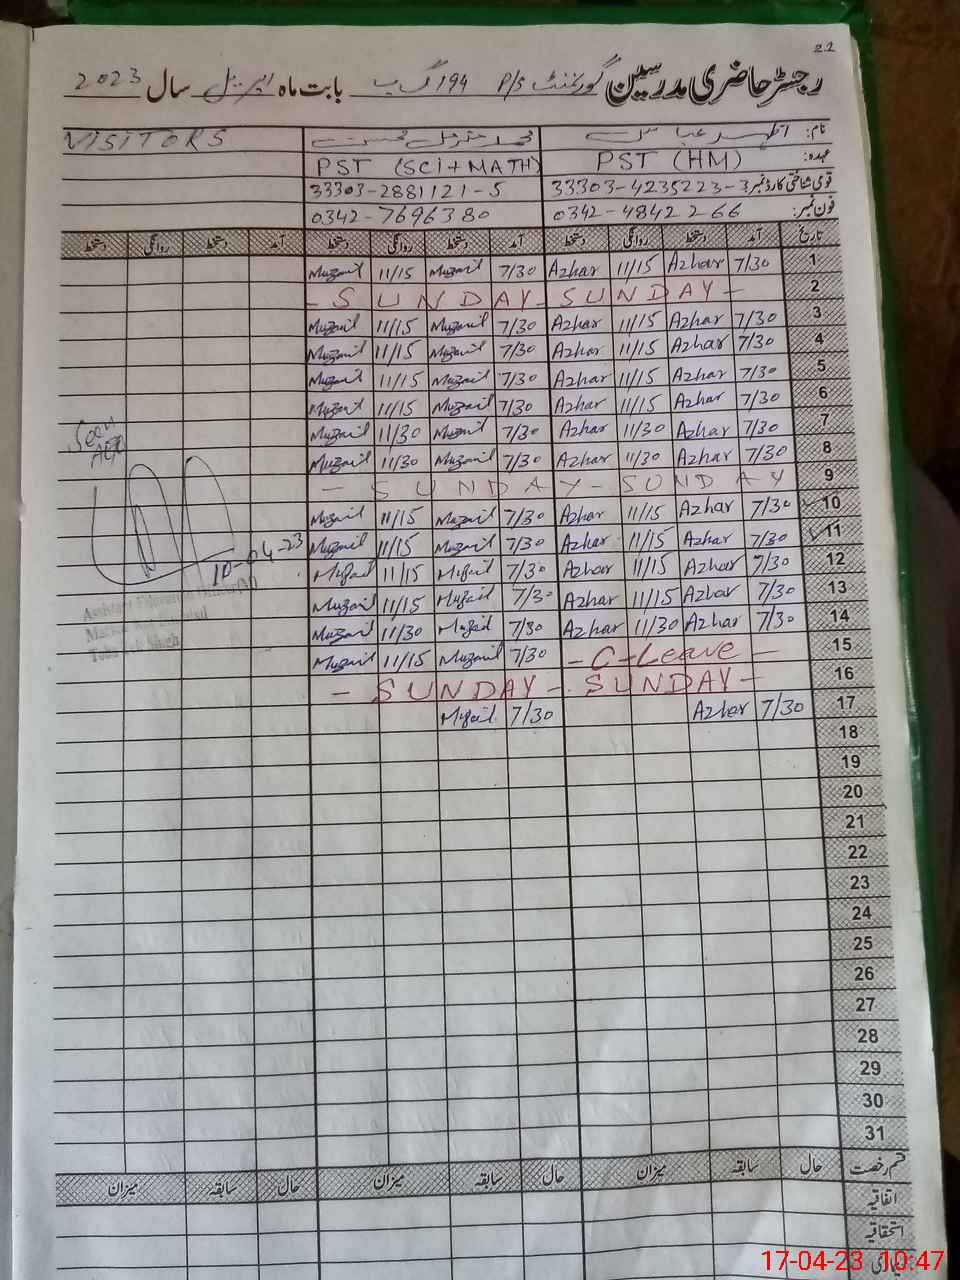 22
رجسٹر حاضری مدرسین گورنمنٹ P/S 194 گ ب بابت ماہ اپریل سال 2023
نام: اظہر عباس محمد VISITORS
عہدہ: PST (HM) PST (SCI+MATH)
قومی شناختی کارڈ نمبر: 33303-4235223-3 33303-2881121-5
فون نمبر: 0342-4842266 0342-7696380
تاریخ آمد دستخط روانگی دستخط آمد دستخط روانگی دستخط آمد دستخط روانگی دستخط
1 7/30 Azhar 11/15 Azhar 7/30 Muzmil 11/15 Muzmil
2 SUNDAY - SUNDAY -
3 7/30 Azhar 11/15 Azhar 7/30 Muzmil 11/15 Muzmil
4 7/30 Azhar 11/15 Azhar 7/30 Muzmil 11/15 Muzmil
5 7/30 Azhar 11/15 Azhar 7/30 Muzmil 11/15 Muzmil
6 7/30 Azhar 11/15 Azhar 7/30 Muzmil 11/15 Muzmil
7 7/30 Azhar 11/30 Azhar 7/30 Muzmil 11/30 Muzmil
8 7/30 Azhar 11/30 Azhar 7/30 Muzmil 11/30 Muzmil
9 - SUNDAY - SUNDAY
10 7/30 Azhar 11/15 Azhar 7/30 Muzmil 11/15 Muzmil
11 7/30 Azhar 11/15 Azhar 7/30 Muzmil 11/15 Muzmil
12 7/30 Azhar 11/15 Azhar 7/30 Muzmil 11/15 Muzmil
13 7/30 Azhar 11/15 Azhar 7/30 Muzmil 11/15 Muzmil
14 7/30 Azhar 11/30 Azhar 7/30 Muzmil 11/30 Muzmil
15 - C-Leave - 7/30 Muzmil 11/15 Muzmil
16 - SUNDAY - SUNDAY -
17 7/30 Azhar 7/30 Muzmil
18
19
20
21
22
23
24
25
26
27
28
29
30
31
Seen
AEO
10-04-23
Assistant Education Officer (M)
Markaz
Toba Tek Singh
قسم رخصت حال سابقہ میزان حال سابقہ میزان حال سابقہ میزان
اتفاقیہ
استحقاقیہ
17-04-23 10:47